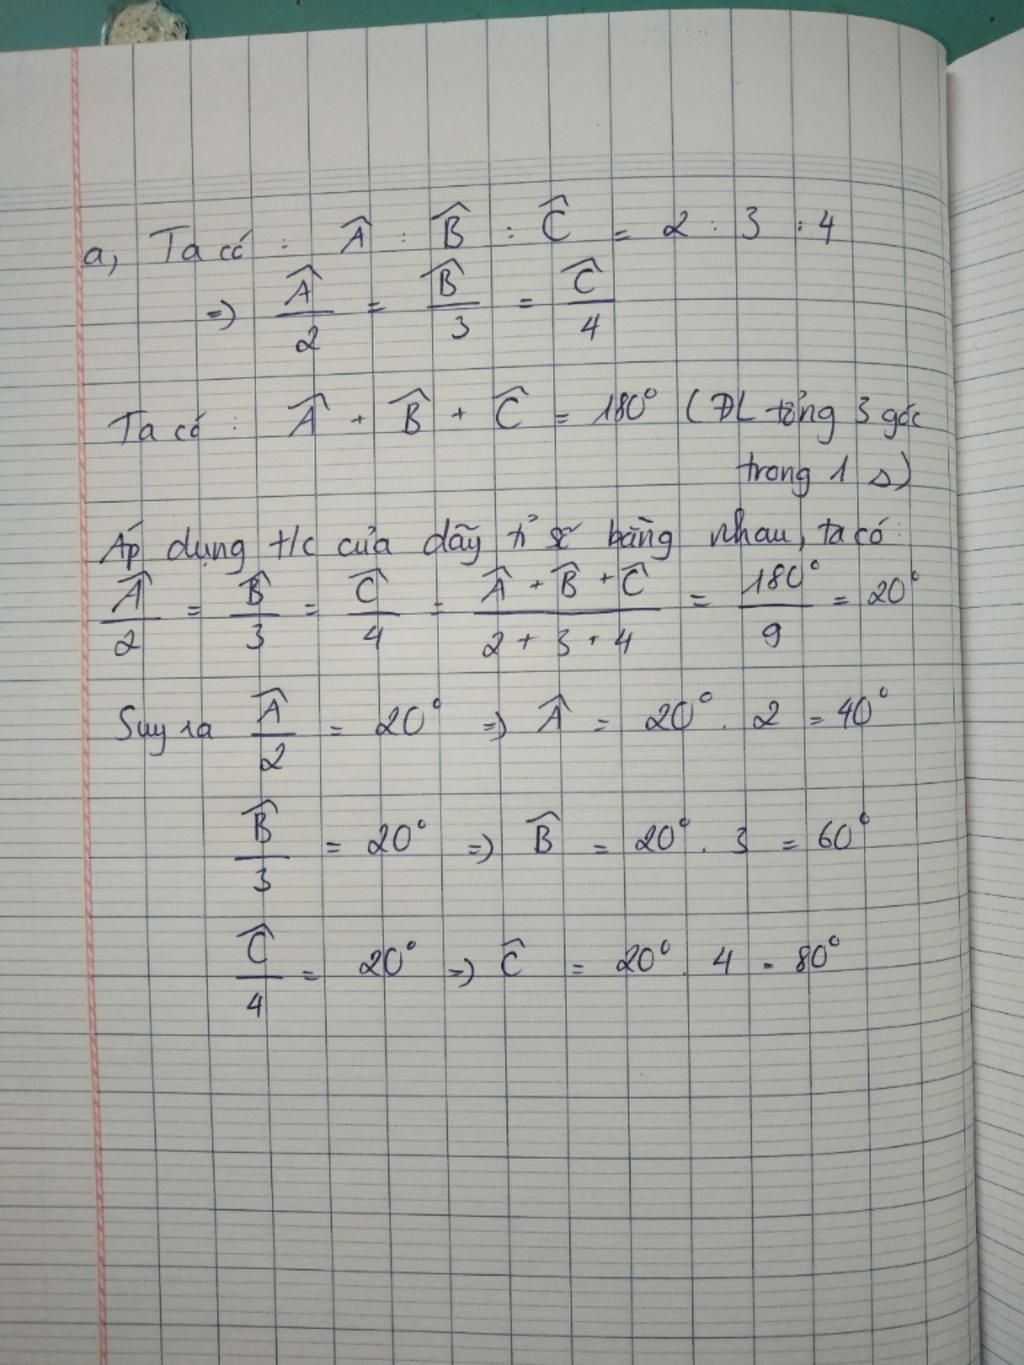 a, Ta có : Â : B̂ : Ĉ = 2 : 3 : 4
=> Â/2 = B̂/3 = Ĉ/4
Ta có : Â + B̂ + Ĉ = 180° (ĐL tổng 3 góc
trong 1 Δ)
Áp dụng t/c của dãy tỉ số bằng nhau, ta có:
Â/2 = B̂/3 = Ĉ/4 = (Â + B̂ + Ĉ)/(2 + 3 + 4) = 180°/9 = 20°
Suy ra Â/2 = 20° => Â = 20° . 2 = 40°
B̂/3 = 20° => B̂ = 20° . 3 = 60°
Ĉ/4 = 20° => Ĉ = 20° . 4 = 80°